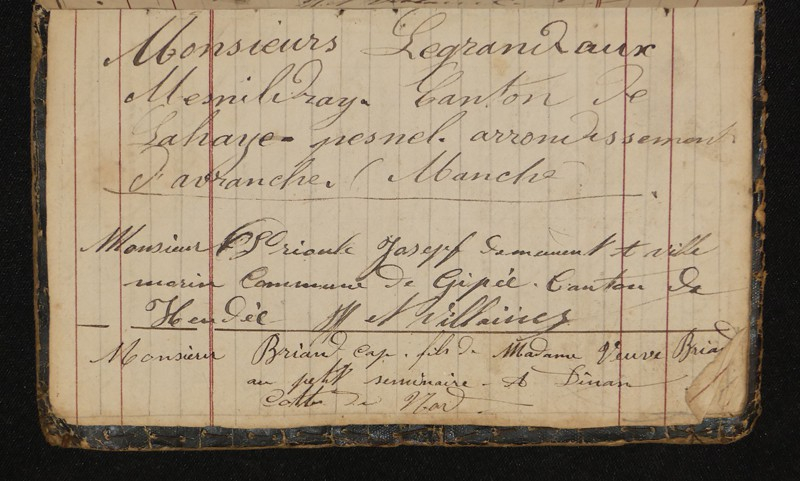 Monsieurs Legrand aux
Mesnildray. Canton de
Lahaye-pesnel. arrondissement
d'avranche. ( Manche
Monsieur Joseph demeurent t ville
morin Commune de Gipée. Canton de
Hendée et Villaines
Monsieur Briand, Cap. fils de Madame Veuve Briad
au petit seminaire - A Dinan
Cotte de Nord.